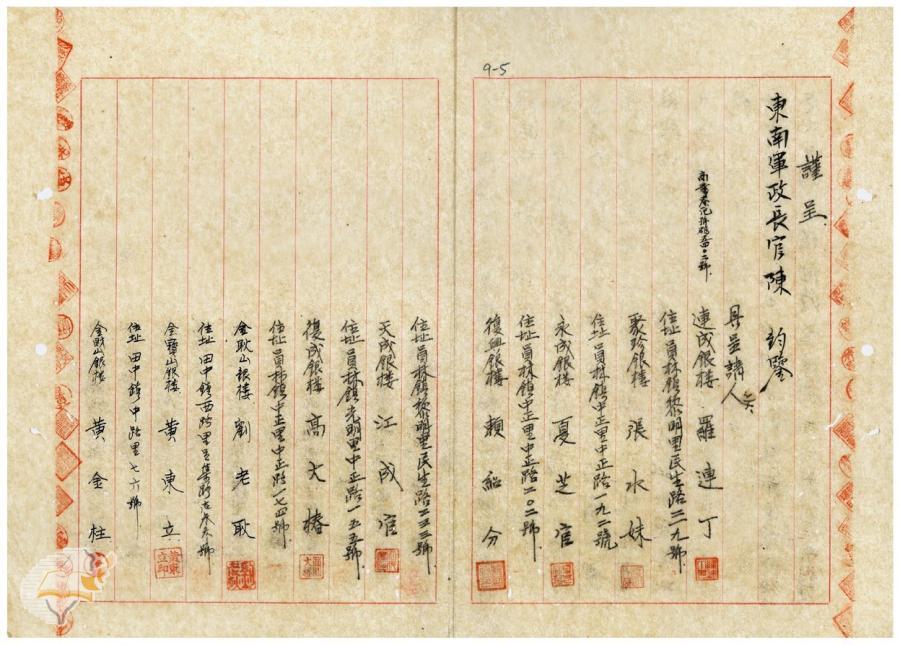 9-5
謹呈
東南軍政長官陳 鈞鑒
具呈請人
連成銀樓 羅連丁
住址員林鎮黎明里民生路二一九號
聚珍銀樓 張水妹
住址員林鎮中正里中正路一九二號
永成銀樓 夏芝官
住址員林鎮中正里中正路二〇二號
復興銀樓 賴紹分
住址員林鎮黎明里民生路二三三號
天成銀樓 江成官
住址員林鎮光明里中正路一五五號
復成銀樓 高大椿
住址員林鎮中正里中正路一七四號
金耿山銀樓 劉老耿
住址田中鎮西路里 號
銀樓 黃東立
住址田中鎮中路里七六號
銀樓 黃金柱